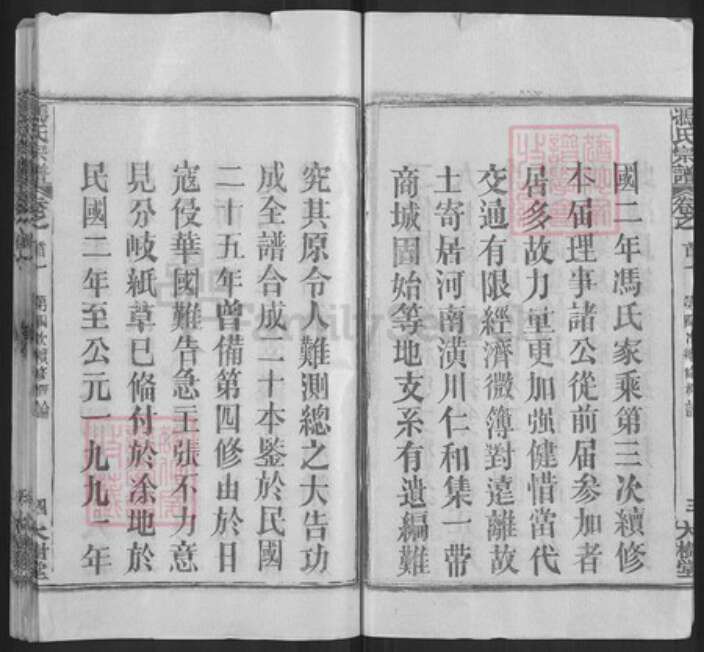 馮氏宗譜
卷之首一
第四次續修譜論
三
大樹堂
國二年馮氏家乘第三次續修
本届理事諸公從前届參加者
居多故力量更加强健惜當代
交通有限經濟微簿對遠離故
土寄居河南潢川仁和集一帶
商城固始等地支系有遺編難
究其原令人難測總之大告功
成全譜合成二十本鉴於民國
二十五年曾備第四修由於日
寇侵華國難告急主張不力意
見分岐紙草已偹付於凃地於
民國二年至公元一九九一年
四
大樹堂
FamilySearch